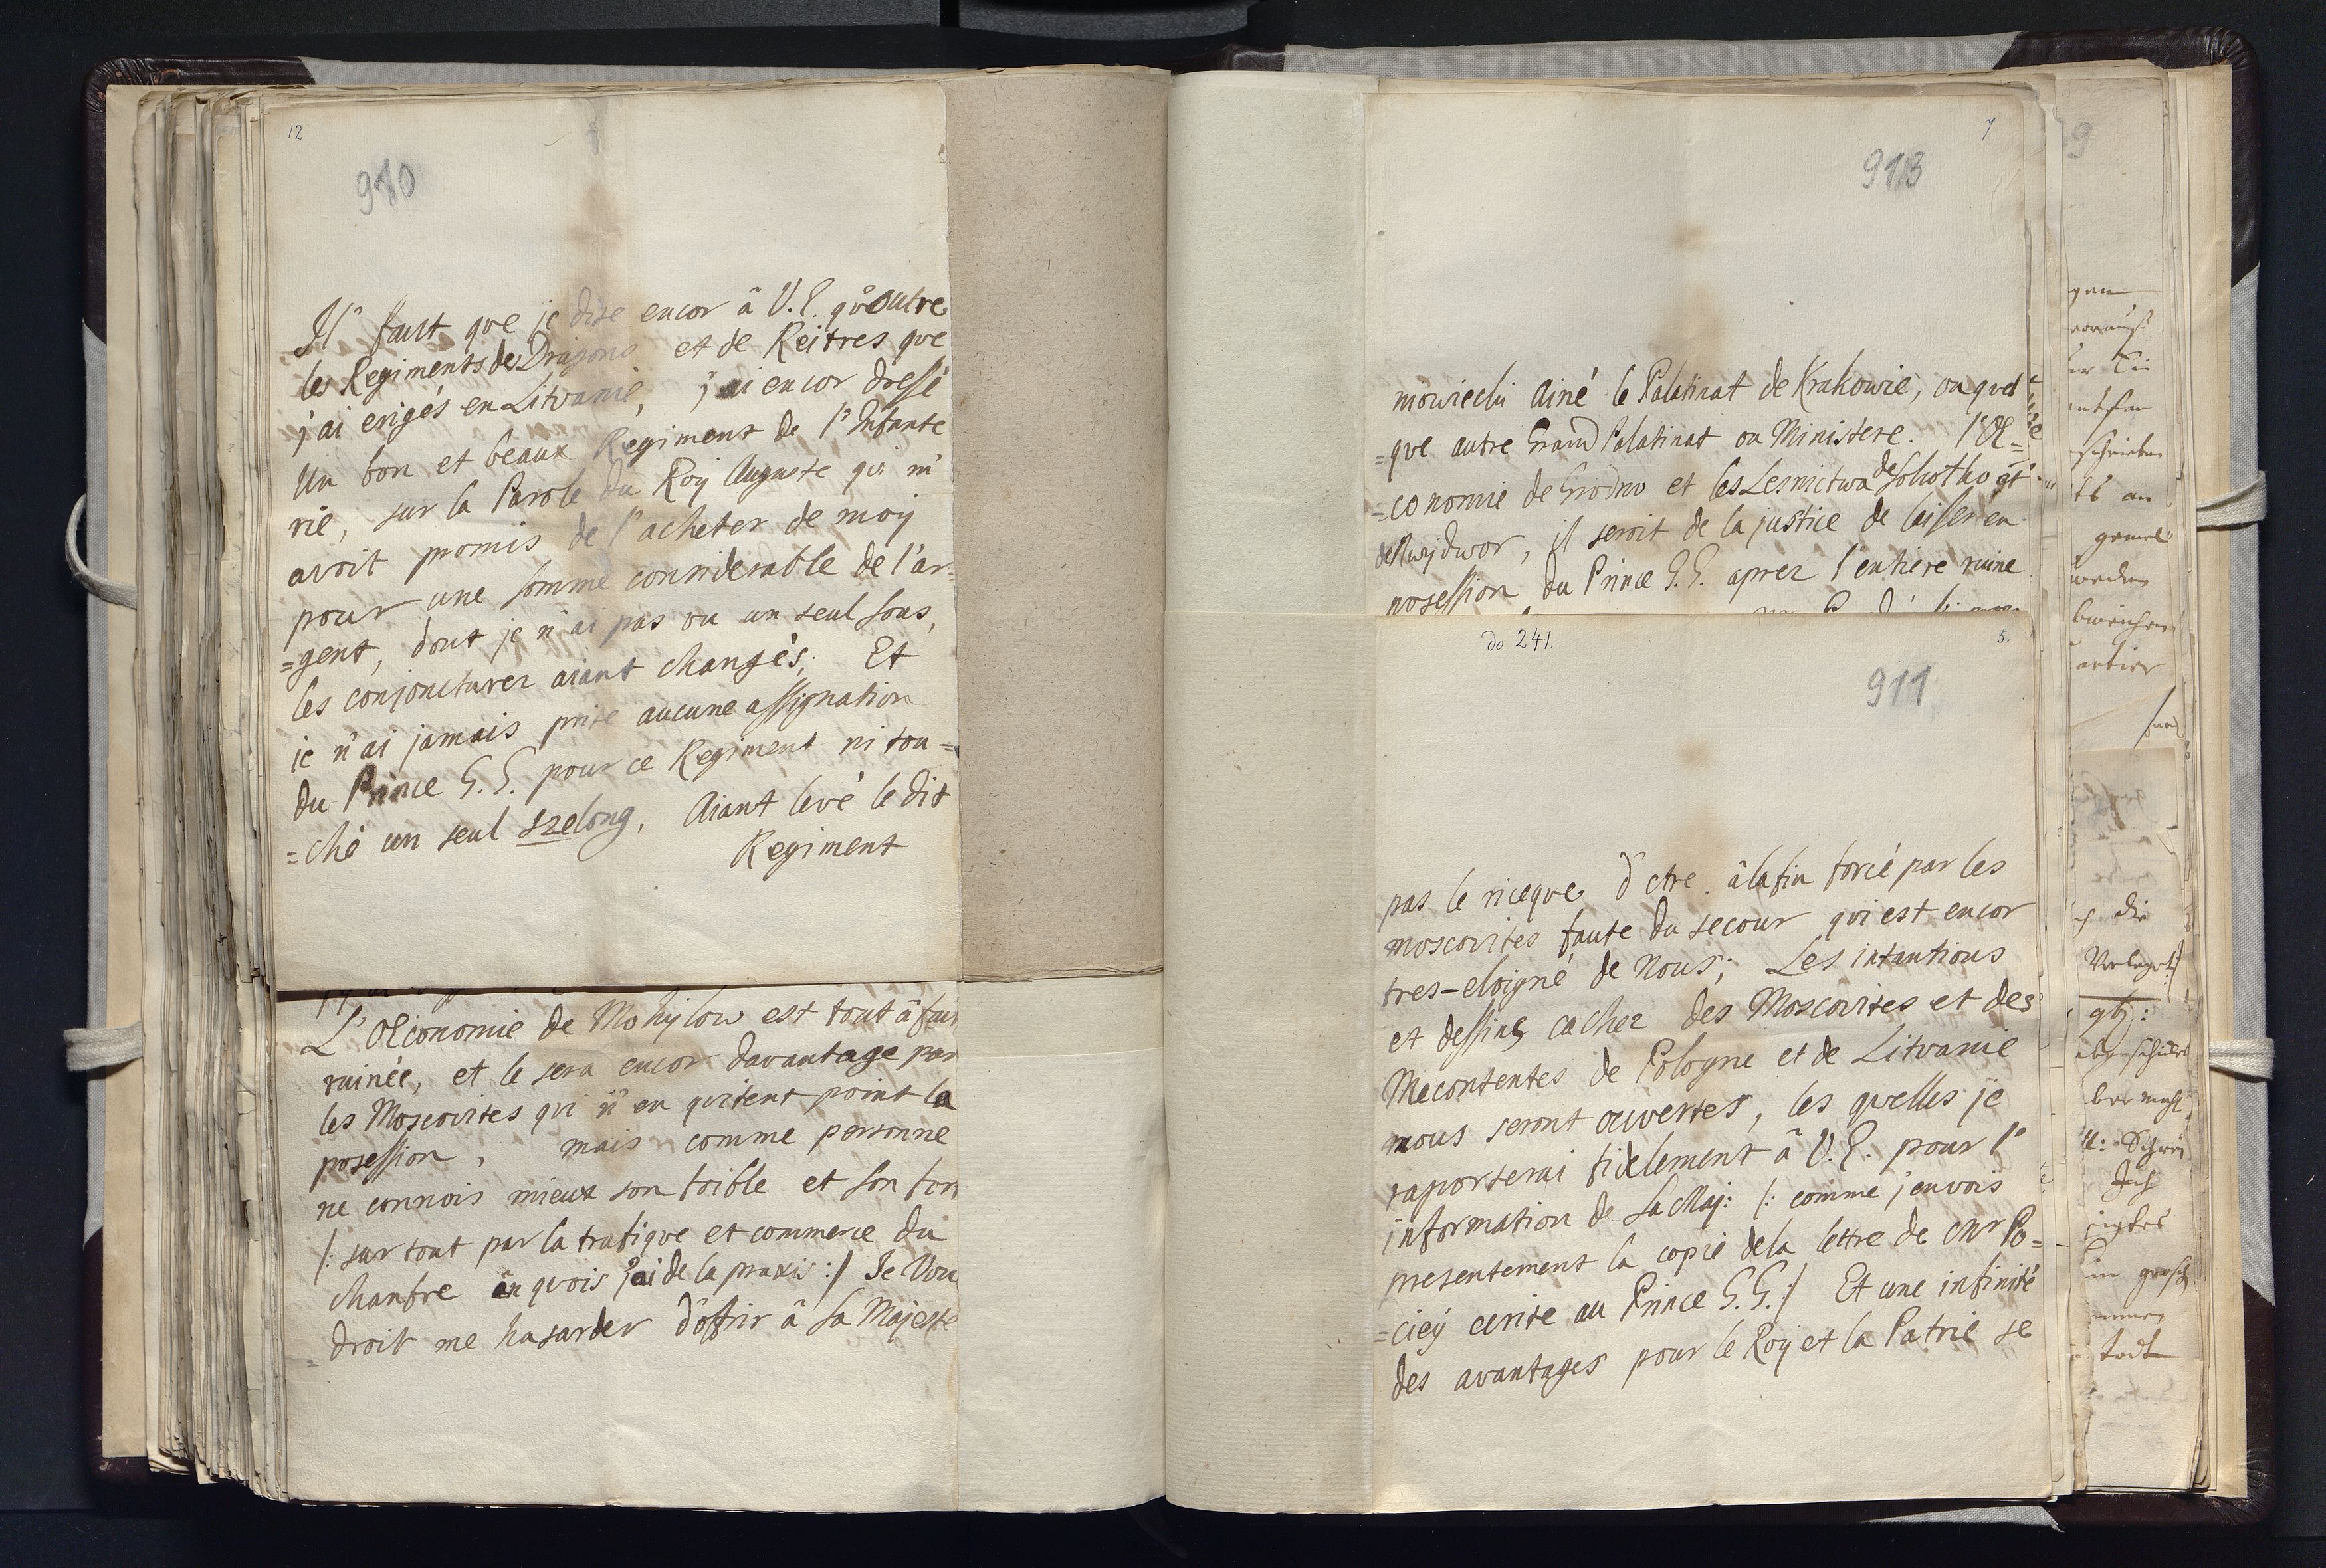 12
910
Il faut que je dise encor â V.E. qu'outre
les Regiments des Dragons et de Reitres que
j'ai erigés en Litvanie, j'ai encor dressé
Un bon et beaux Regiment de l'Infante
rie, sur la Parole du Roy Auguste qui m'
avoit promis de l'acheter de moy
pour une somme considerable de l'ar
=gent, dont je n'ai pas vu un seul sous,
les conjonctures aiant changés; Et
je n'ai jamais prise aucune assignation
du Prince G.G. pour ce Regiment ni tou=
=ché un seul szelong. Aiant levé le dit
Regiment
L'OEconomie de Mohylow est tout â fait
ruinée, et le sera encor davantage par
les Moscovites qui n'en quitent point la
posession, mais comme personne
ne connois mieux son foible et son fort
/: sur tout par la trafique et commerce du
chanfre en quois j'ai de la praxis :/ Je Vou
=droit me hasarder d'offrir â Sa Majesté
7
913
niowiecki Ainé le Palatinat de Krakowie, ou quel
=que autre Grand Palatinat ou Ministere. l'OE=
=conomie de Grodno et les Lesnictwa de Sokolko et
de Nwydwor, il seroit de la justice de laisser en
posession du Prince G.G. aprez l'entiere ruine
do 241.
5.
911
pas le riceque d'etre â la fin forcé par les
moscovites faute du secour qui est encor
tres-eloigné de Nous; Les intantions
et dessins cachez des Moscovites et des
Mecontentes de Pologne et de Litvanie
nous seront ouvertes, les quelles je
raporterai fidelement â V.E. pour l'
information de Sa Maj: /: comme j'envois
presentement la copie de la lettre de Mr Po=
=ciey ecrite au Prince G.G. :/ Et une infinité
des avantages pour le Roy et la Patrie se
9
gemel
die
Ich